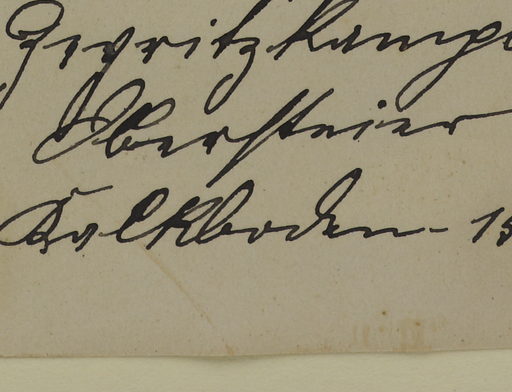 Zeyritzkampe
Obersteier
Kalkboden - 15